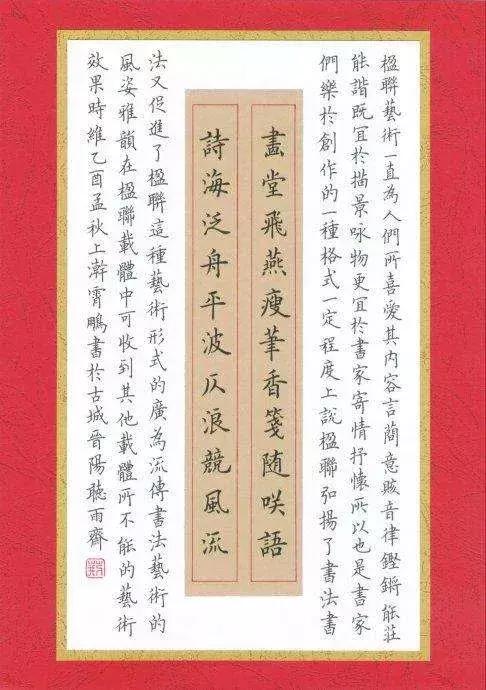 楹聯藝術一直為人們所喜愛其内容言簡意賅音律鏗鏘能莊
能諧既宜於描景咏物更宜於書家寄情抒懷所以也是書家
們樂於創作的一種格式一定程度上說楹聯弘揚了書法書
畫堂飛燕瘦筆香箋随咲語
詩海泛舟平波仄浪競風流
法又促進了楹聯這種藝術形式的廣為流傳書法藝術的
風姿雅韻在楹聯載體中可收到其他載體所不能的藝術
效果時維乙酉孟秋上澣霄鵬書於古城晉陽聽雨齋